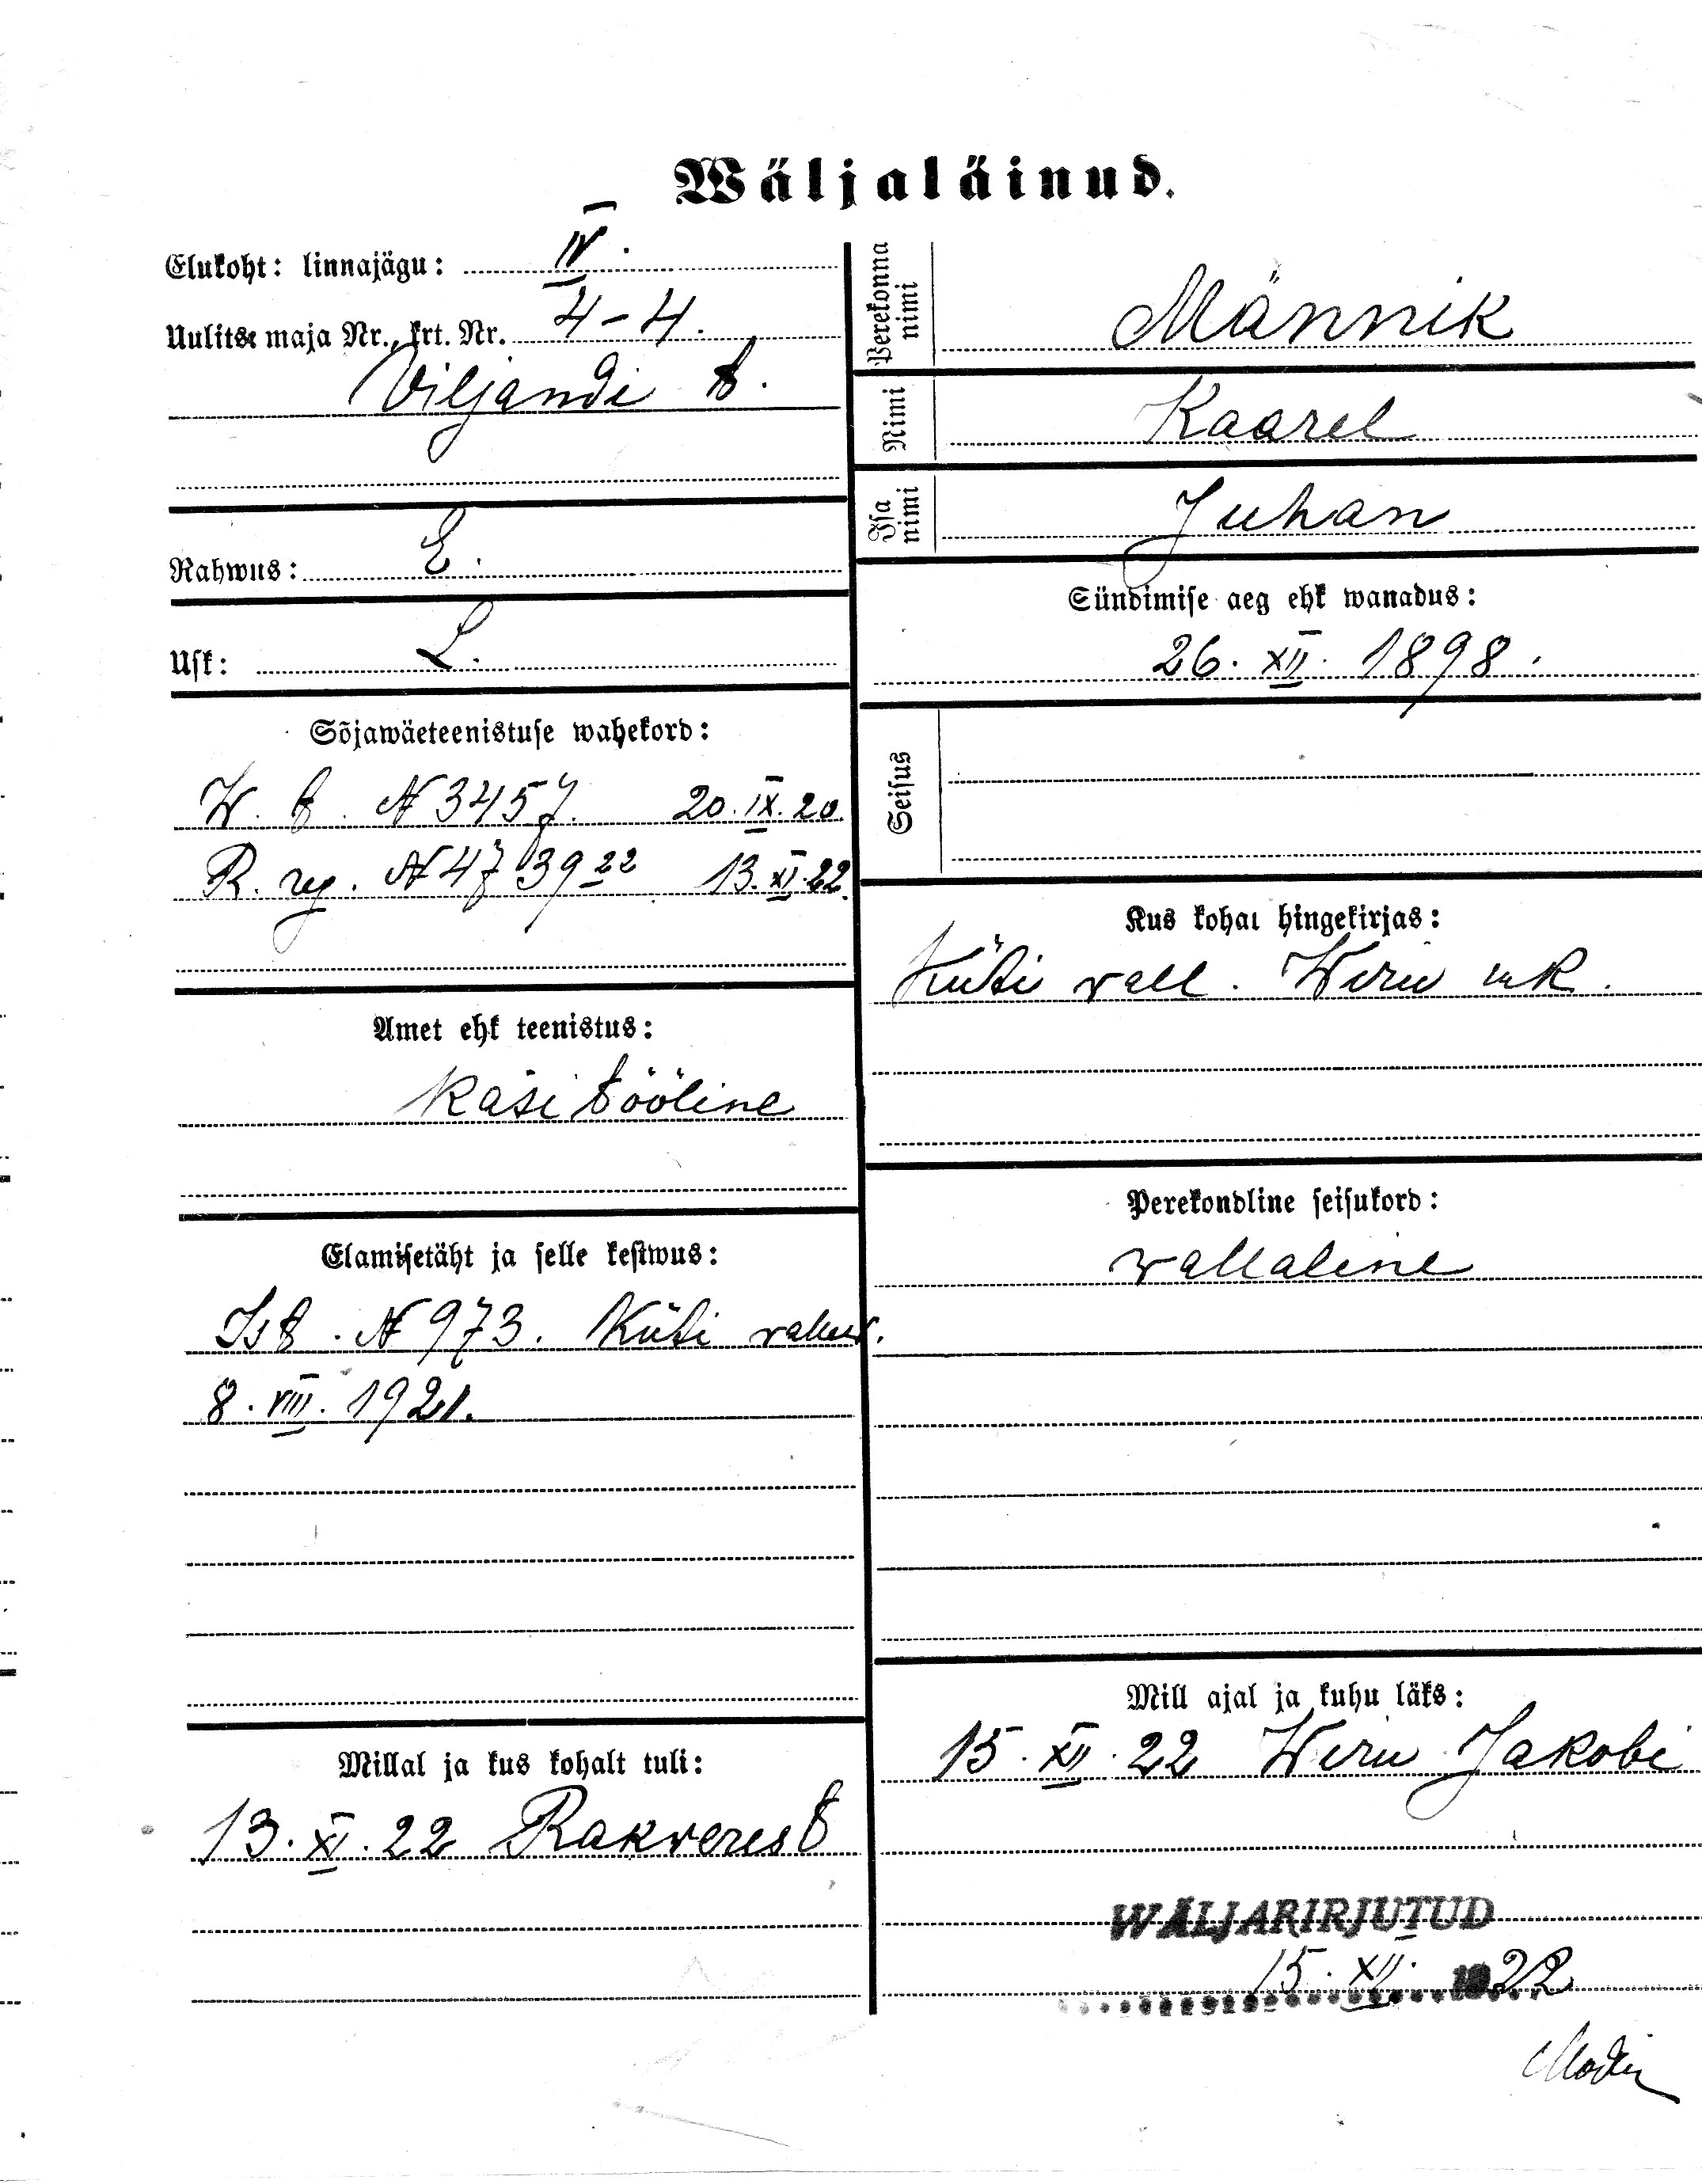 Wäljaläinud.
Elukoht: linnajägu: IV.
Uulitse maja Nr., krt. Nr. 4-4.
Viljandi t.
Rahwus: E.
Usk: L.
Sõjawäeteenistuse wahekord:
W. t. № 3457. 20. IX. 20.
R. reg. № 4739 22 13. XI. 22.
Amet ehk teenistus:
Käsitööline
Elamisetäht ja selle kestwus:
Ist. № 973. Küti
8. VIII. 1921.
Millal ja kus kohalt tuli:
13. XI. 22 Rakverest
Perekonna nimi
Männik
Nimi
Kaarel
Isa nimi
Juhan
Sündimise aeg ehk wanadus:
26. XII. 1898.
Seisus
Kus kohal hingekirjas:
Küti vall. Wiru mk.
Perekondline seisukord:
vallaline
Mill ajal ja kuhu läks:
15. XII. 22 Wiru Jakobi
WÄLJARIRJUTUD
15. XII. 1922